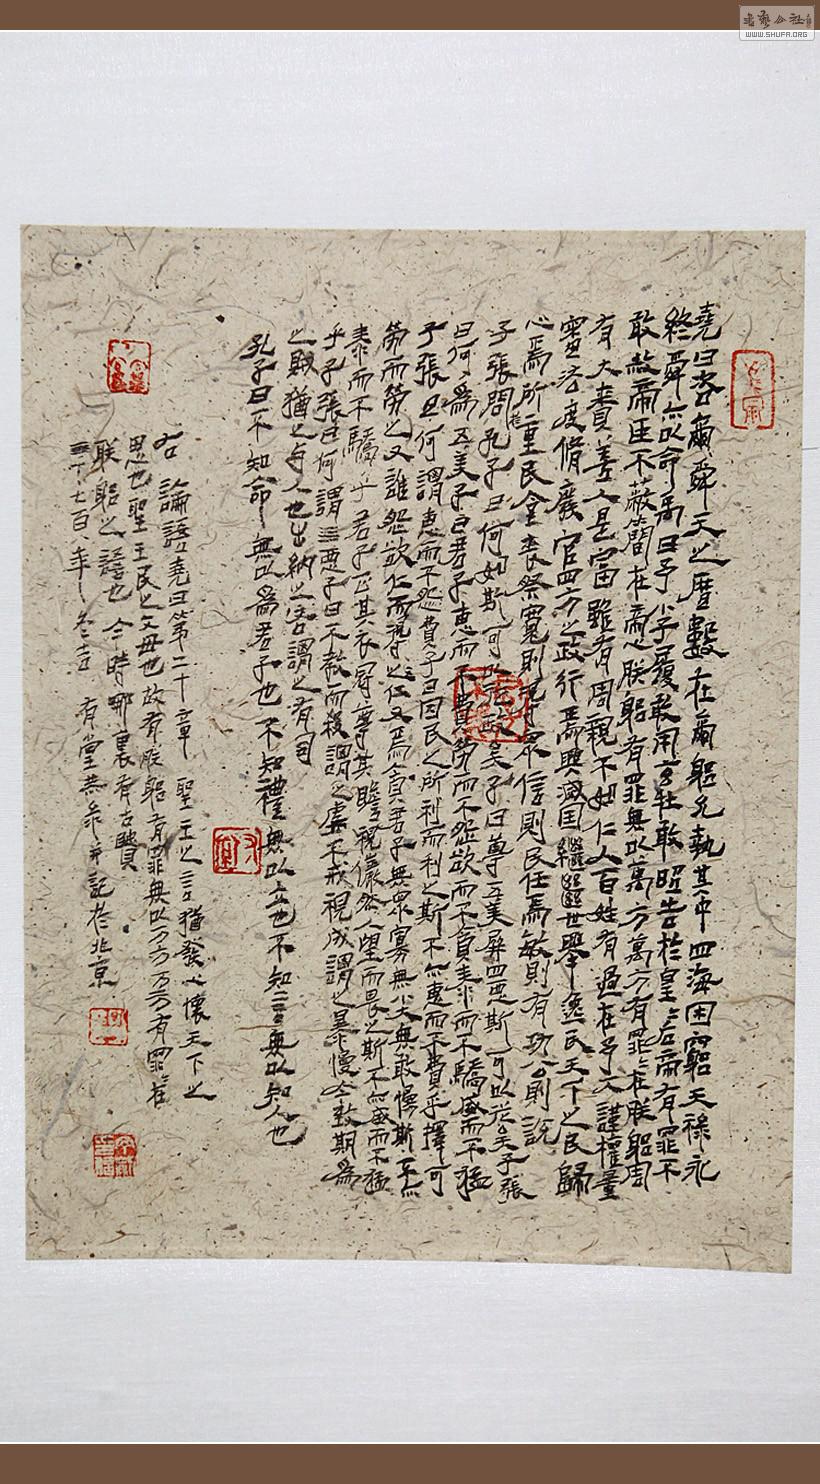 堯曰咨爾舜天之曆數在爾躬允執其中四海困窮天祿永
終舜亦以命禹曰予小子履敢用玄牡敢昭告於皇皇后帝有罪不
敢赦帝臣不蔽簡在帝心朕躬有罪無以萬方萬方有罪罪在朕躬周
有大賚善人是富雖有周親不如仁人百姓有過在予一人謹權量
審法度修廢官四方之政行焉興滅国繼絕世舉逸民天下之民歸
心焉所重民食喪祭寬則得眾信則民任焉敏則有功公則說
子張問於孔子曰何如斯可以從政矣子曰尊五美屏四惡斯可以從政矣子張
曰何謂五美子曰君子惠而不費勞而不怨欲而不貪泰而不驕威而不猛
子張曰何謂惠而不費子曰因民之所利而利之斯不亦惠而不費乎擇可
勞而勞之又誰怨欲仁而得仁又焉貪君子無眾寡無小大無敢慢斯不亦
泰而不驕乎君子正其衣冠尊其瞻視儼然人望而畏之斯不亦威而不猛
乎子張曰何謂四惡子曰不教而殺謂之虐不戒視成謂之暴慢令致期為
之賊猶之与人也出納之吝謂之有司
孔子曰不知命無以為君子也不知禮無以立也不知言無以知人也
右論語堯曰第二十章 聖王之言猶發心懷天下之
思也聖王民之父母也故有朕躬有罪無以万方万方有罪罪在
朕躬之語也今時哪裏有古賢
年冬吉有堂恭錄并記於北京
WWW.SHUFA.ORG